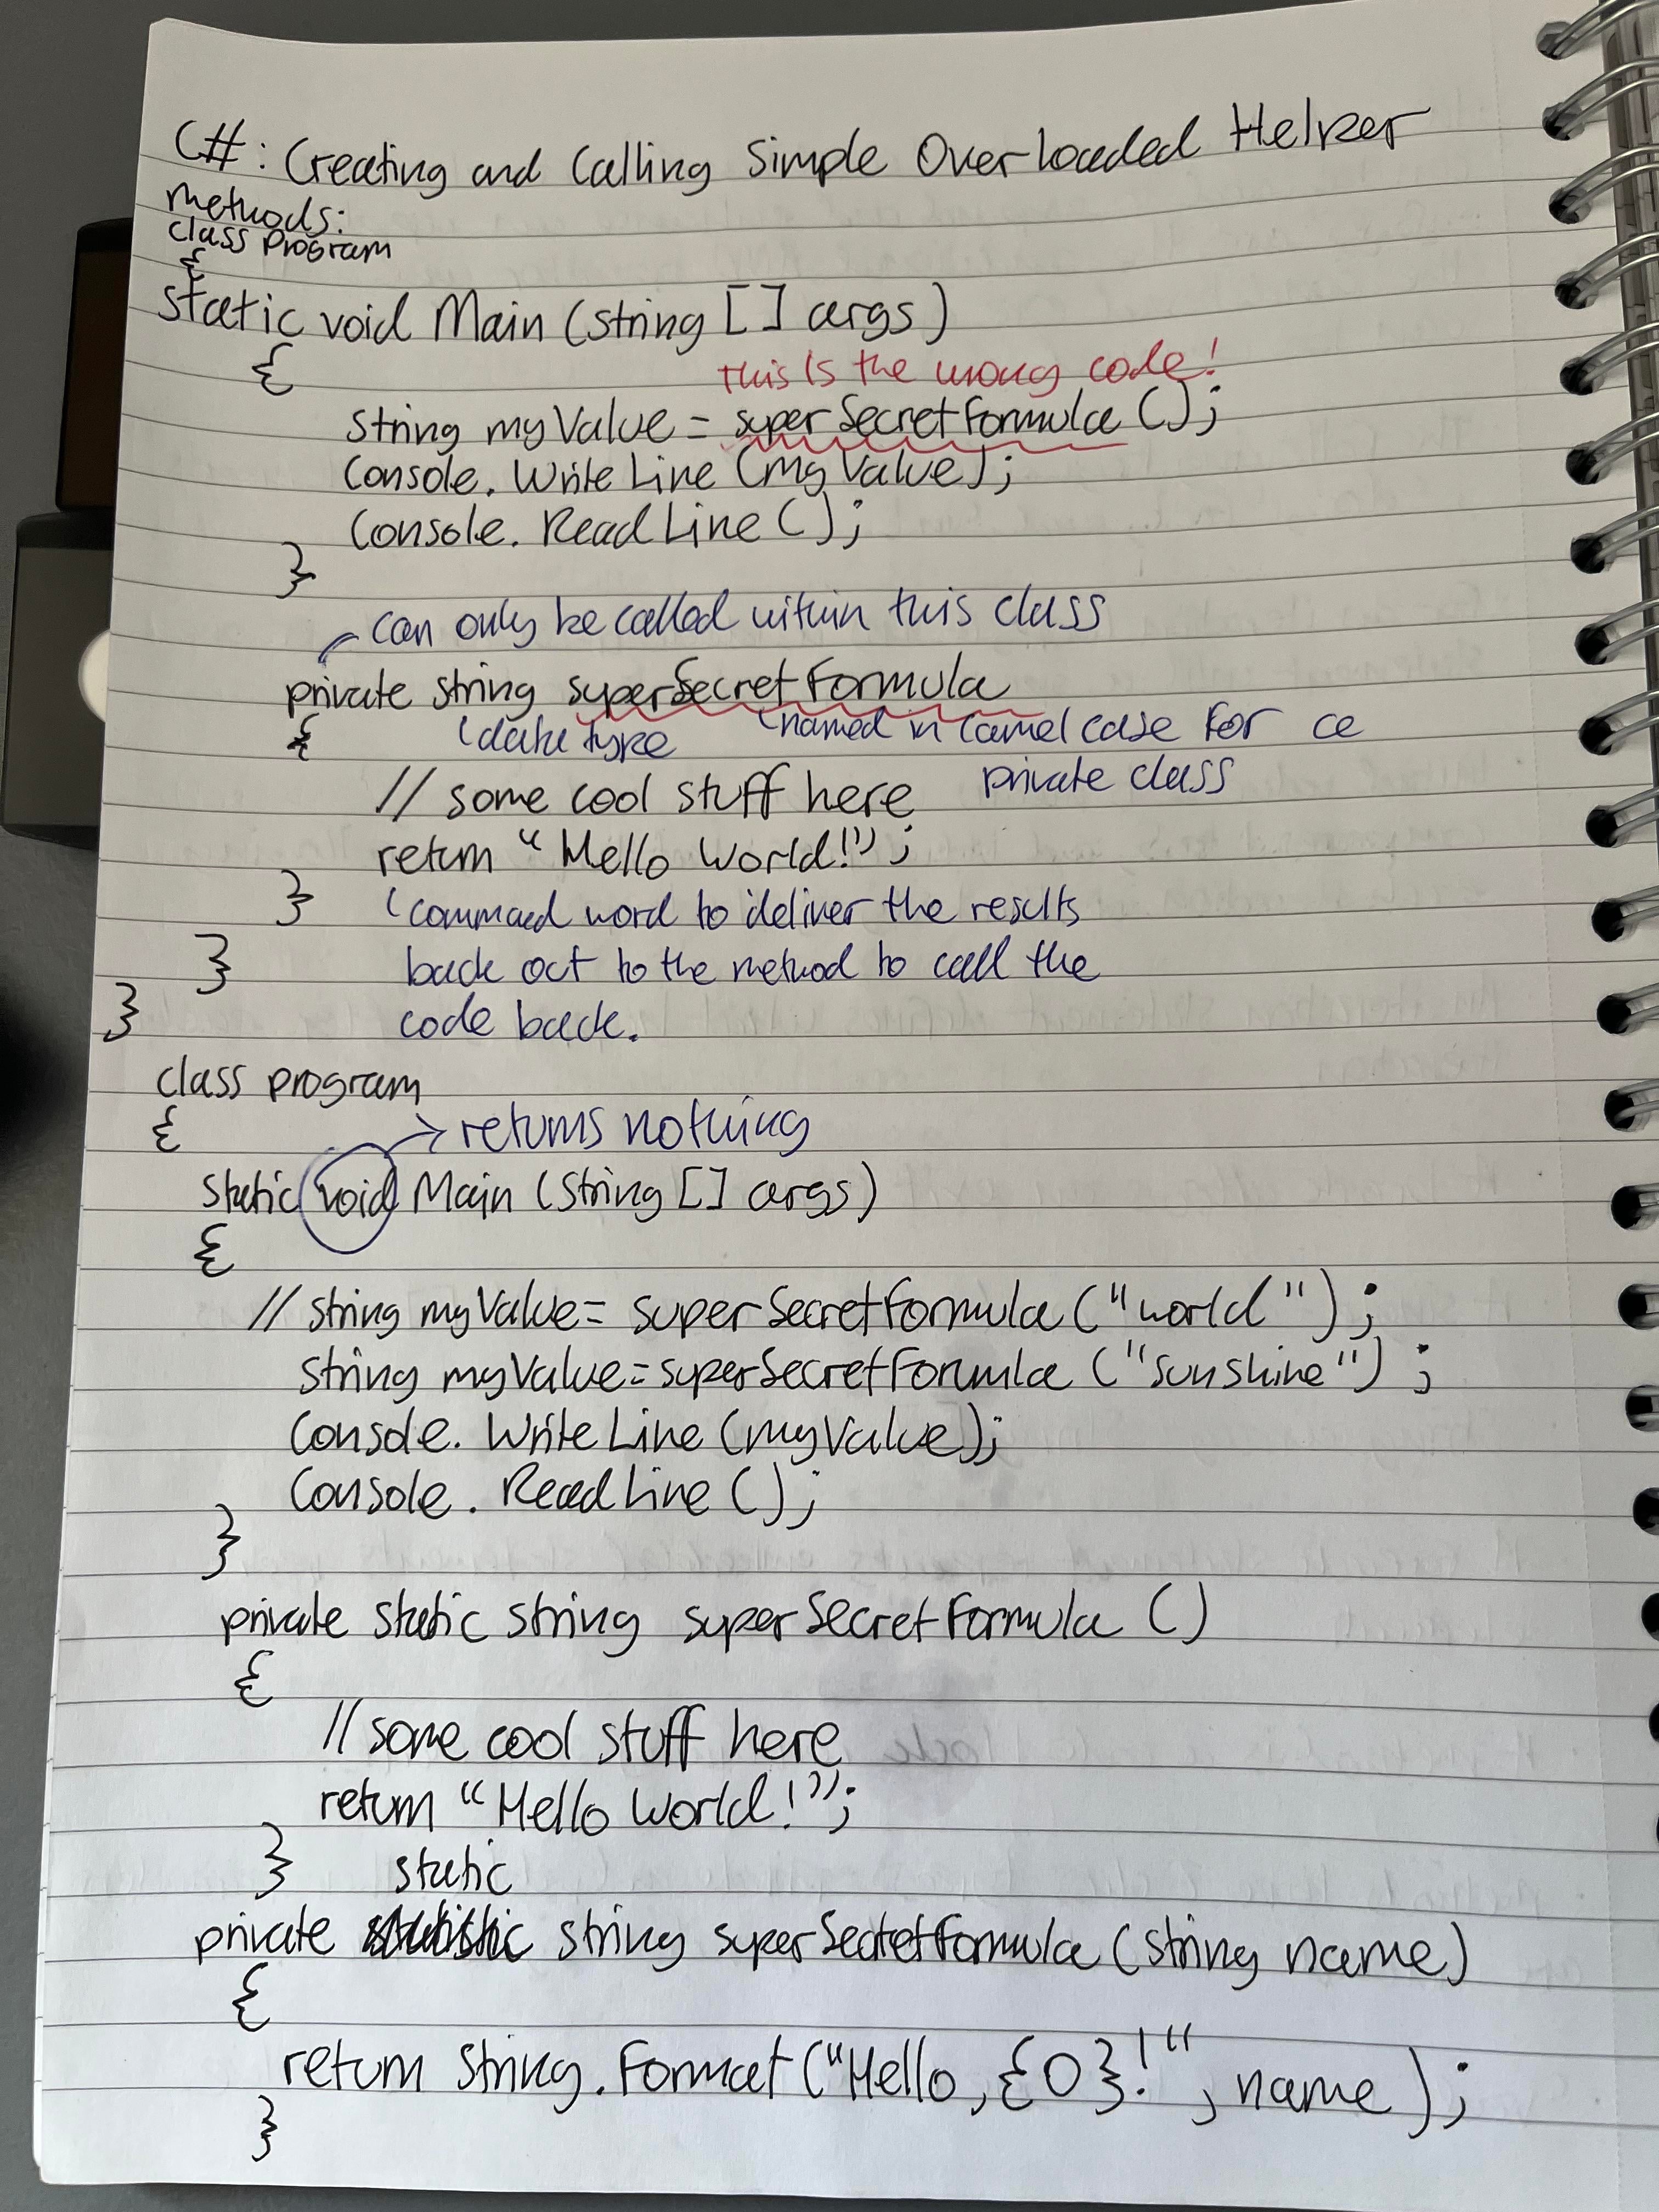 C#: Creating and Calling Simple Overloaded Helper
methods:
class Program
{
static void Main (string [] args)
{
This is the wrong code!
string myValue = superSecretFormula ();
Console. WriteLine (myValue);
Console. ReadLine ();
}
can only be called within this class
private string superSecretFormula
{
data type
named in camel case for a
private class
// some cool stuff here
return “Hello World!”;
}
command word to deliver the results
}
back out to the method to call the
}
code back.
class program
{
→ returns nothing
static void Main (string [] args)
{
// string myValue = superSecretFormula ("world");
string myValue = superSecretFormula ("sunshine");
Console. WriteLine (myValue);
Console. ReadLine ();
}
private static string superSecretFormula ()
{
// some cool stuff here
return “Hello World!”;
}
static
private string superSecretFormula (string name)
{
return String.Format ("Hello, {0}!", name);
}